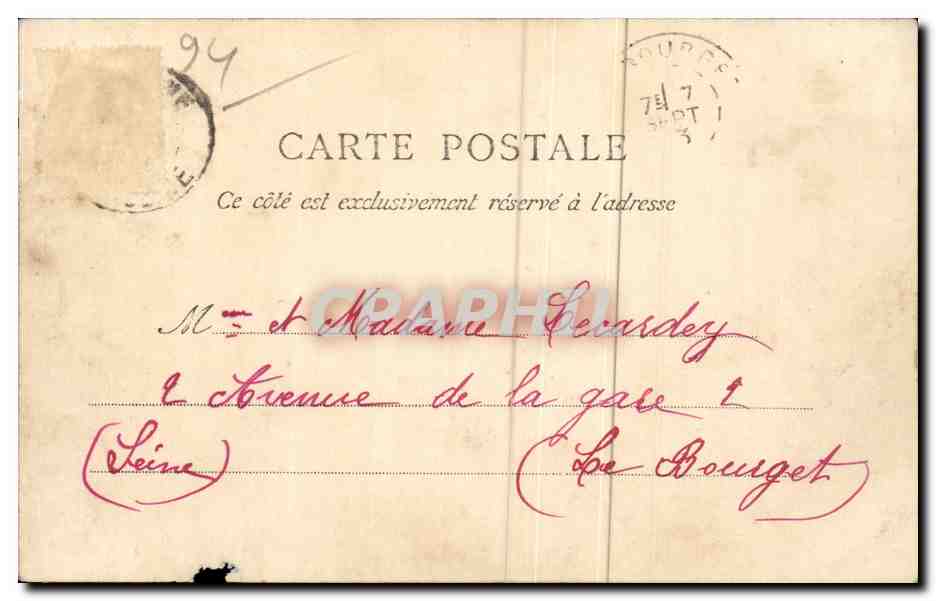 94
7E 7
SEPT
CARTE POSTALE
Ce côté est exclusivement réservé à l'adresse
CPAPHIL
Mme et Madame Lecardey
2 Avenue de la gare 2
(Seine) (Le Bourget)